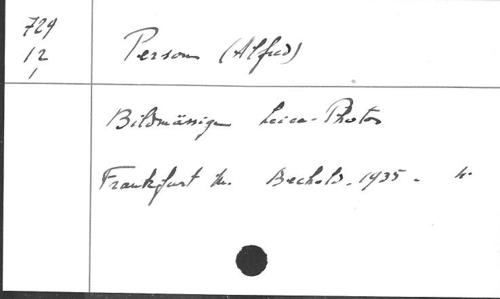 729
12
1
Person (Alfred)
Bildmässige Leica-Photos
Frankfurt M. Bechold. 1935. 4.